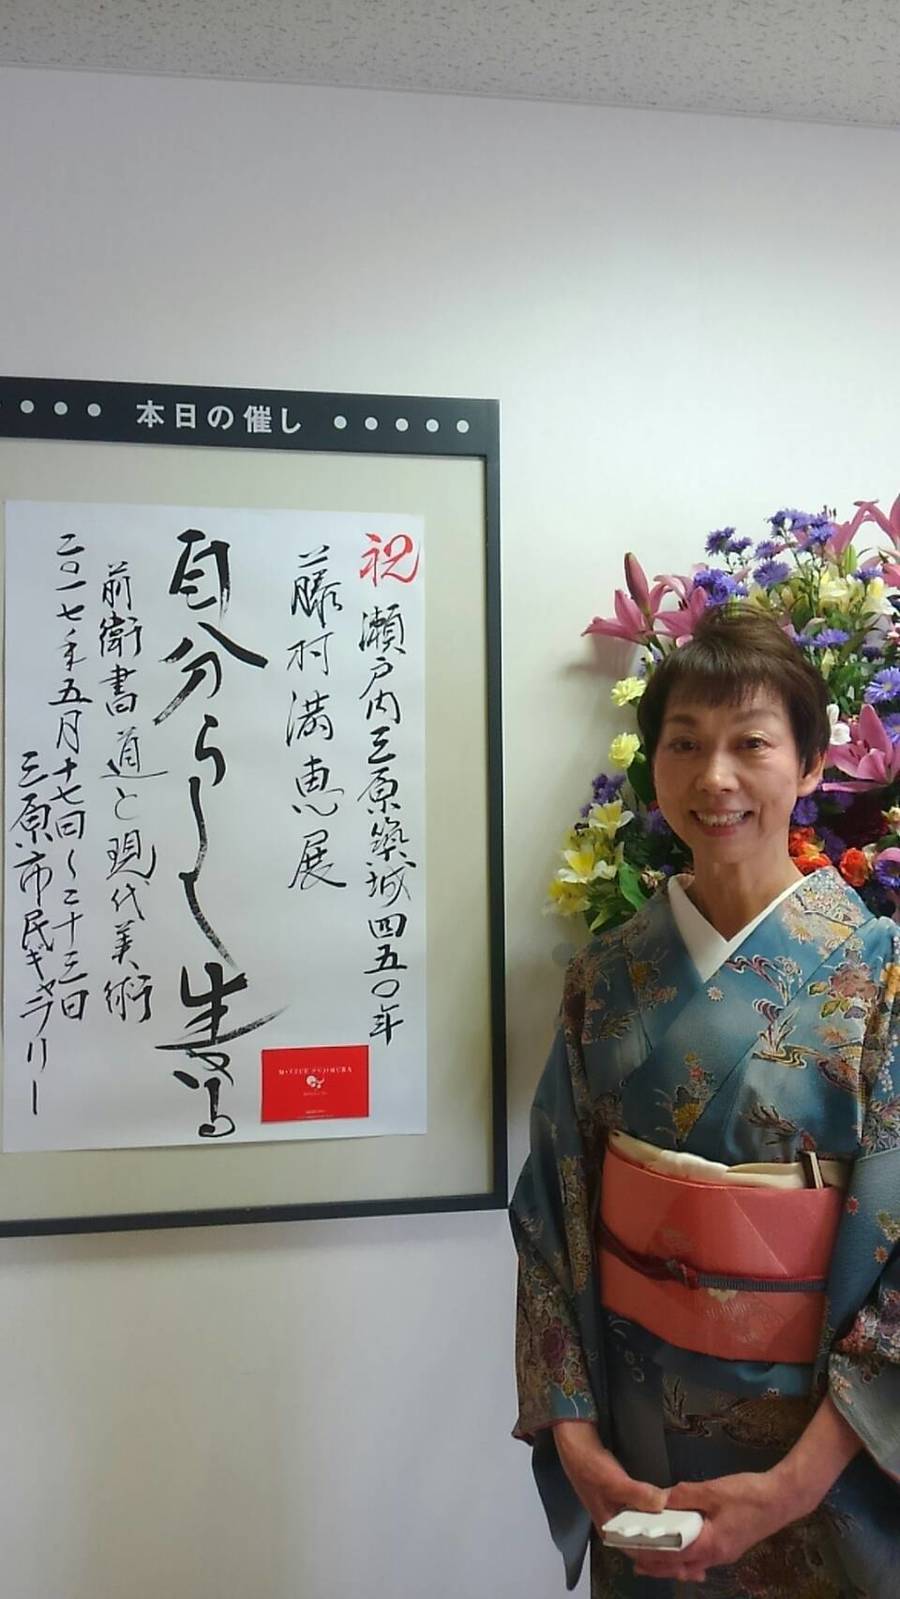 本日の催し
祝 瀬戸内三原築城四五〇年
藤村満恵展
自分らしく生きる
前衛書道と現代美術
二〇一七年五月十七日~二十三日
三原市民ギャラリー
MITSUE FUJIMURA